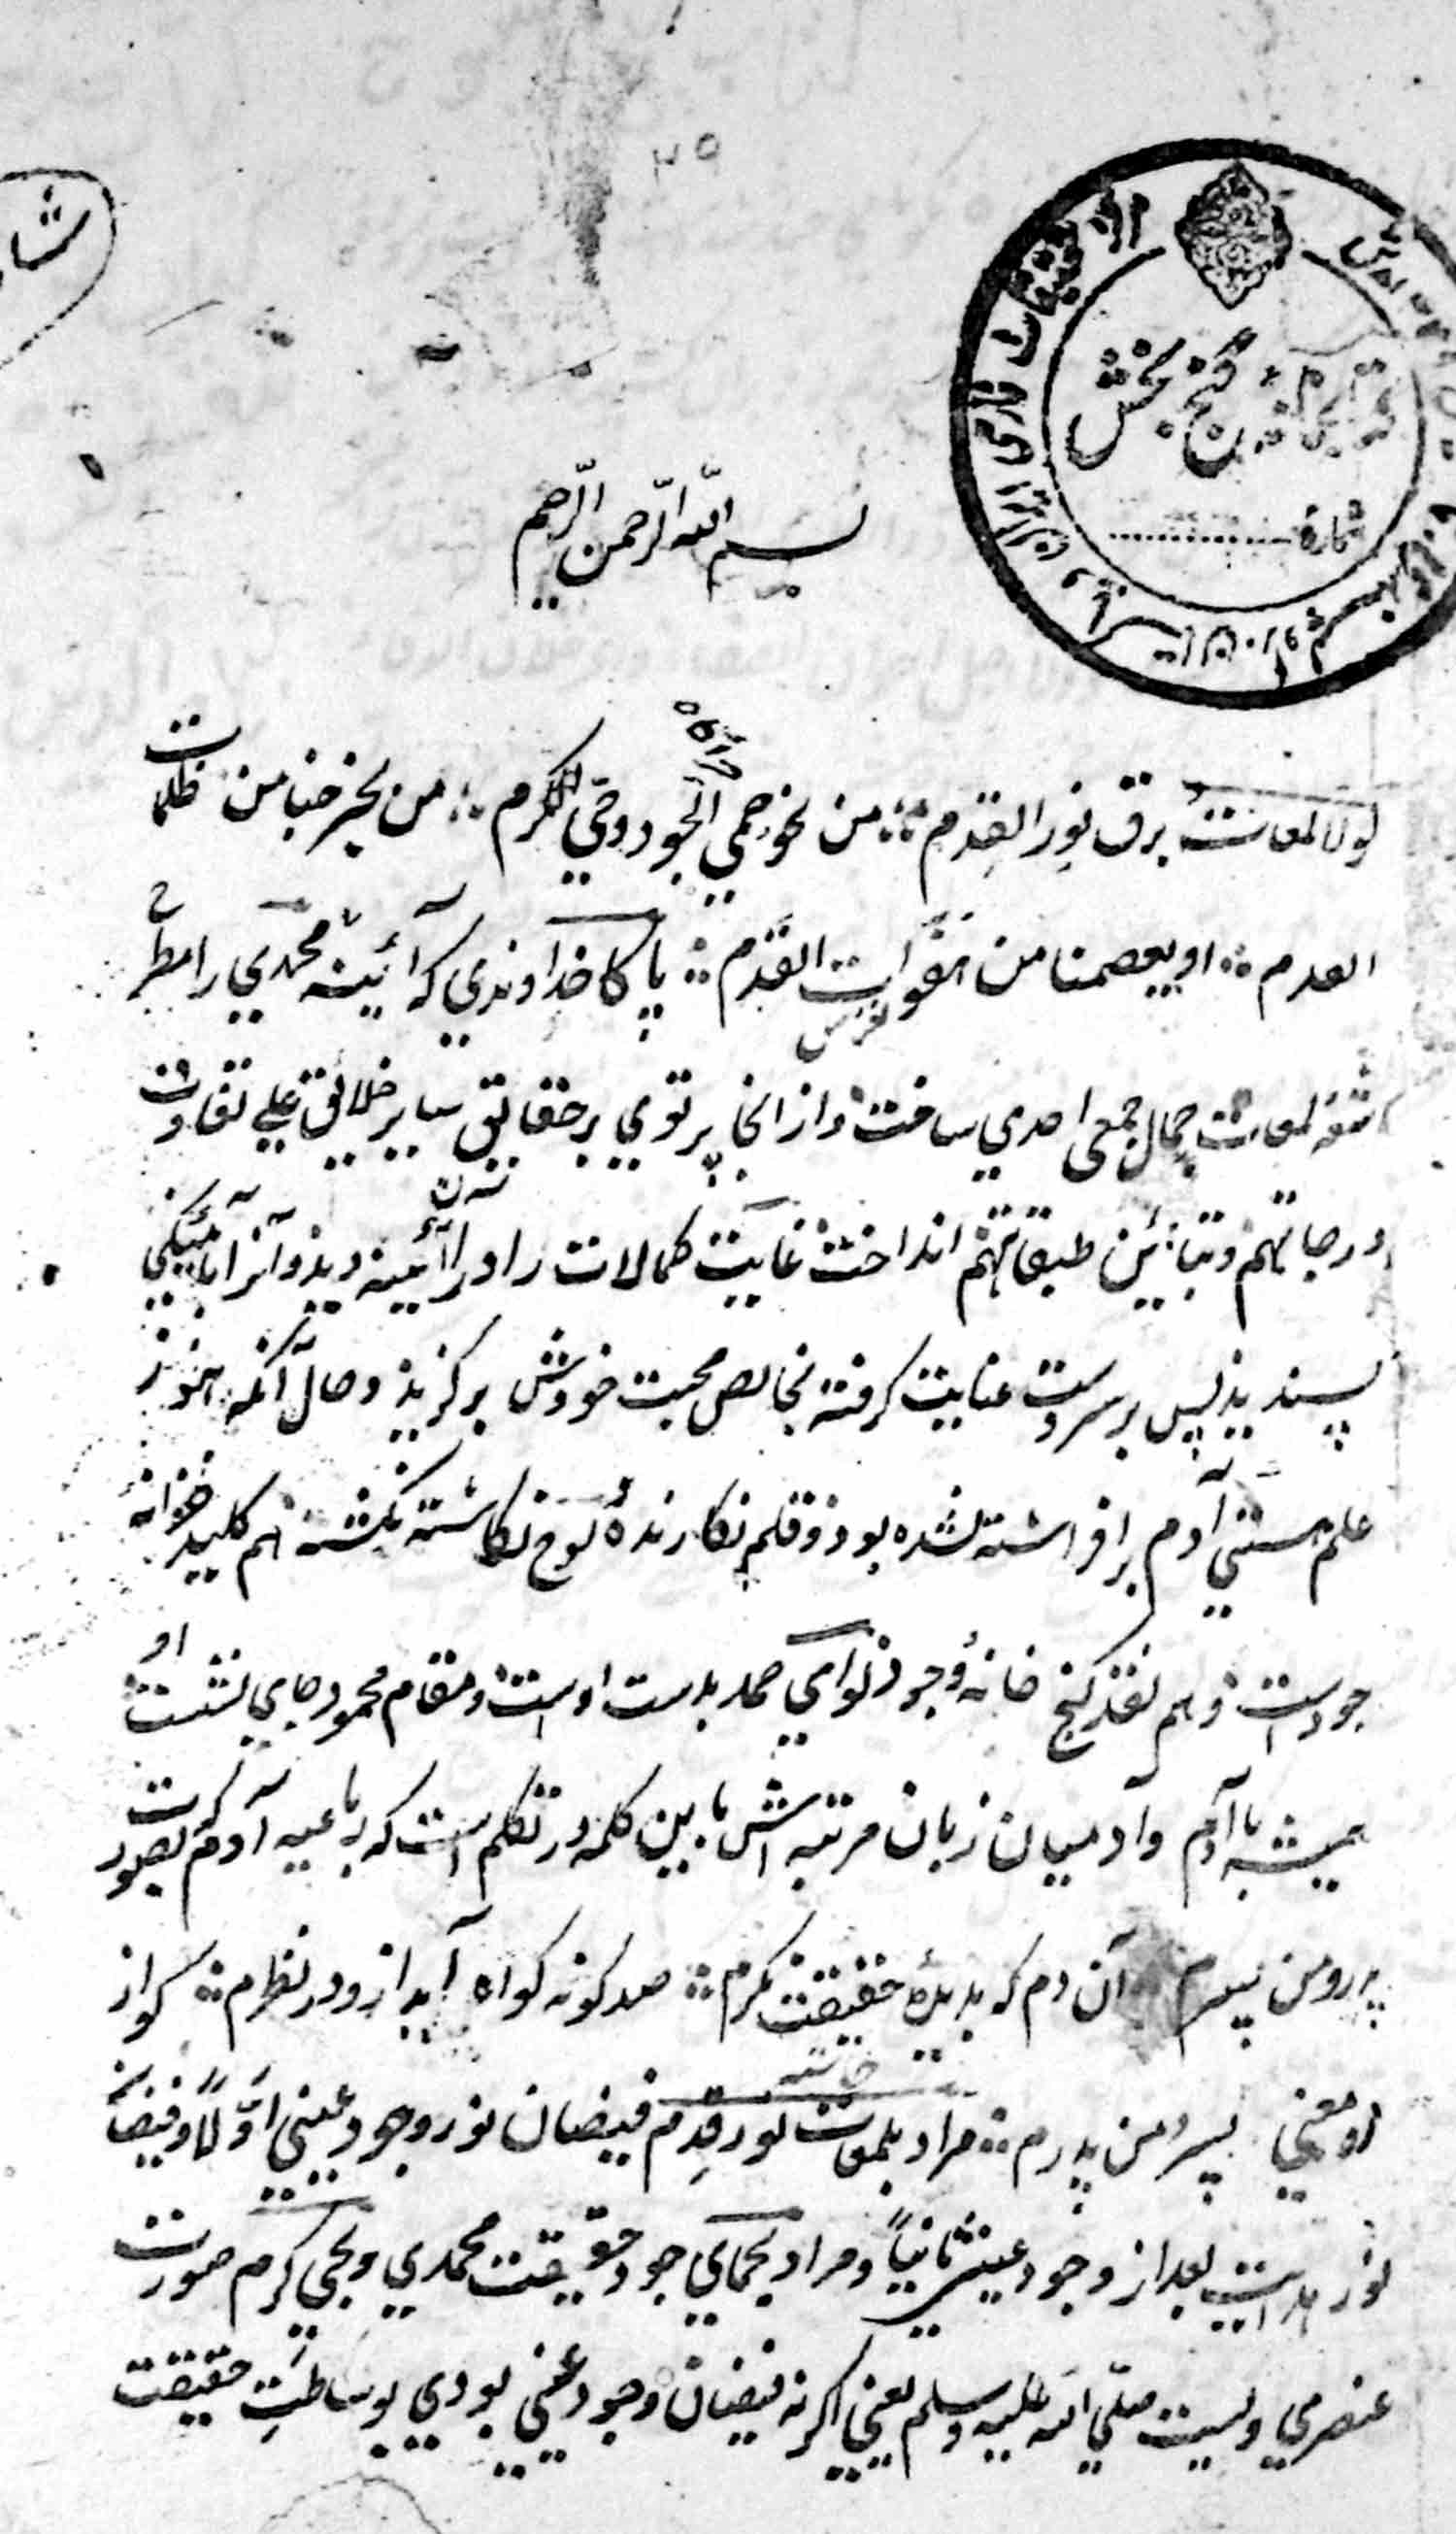 ۳۵
شما
کتابخانه گنج بخش
شماره
بسم الله الرحمن الرحیم
لولا لمعات برق نور القدم ؛ من نحو حمی الجود و حی الکرم ؛ من یخرجنا من ظلمات
العدم ؛ او یعصمنا من هفوات القدم ؛ پاکا خداوندي که آئینه محمدي را مطرح
اشعه لمعات جمال جمعی احدي ساخت و از انجا پرتوي بر حقایق سایر خلائق علی تفاوت
درجاتهم و تباین طبقاتهم انداخت غایت کمالات را در ان آئینه دید و آنرا
پسندید پس بر سر دست عنایت گرفته بخالص محبت خودش برگزید و حال آنکه هنوز
علم هستي آدم برافراشته نشده بود و قلم نگارندۀ لوح نگاشته نگشته هم کلید خزانۀ
جودست و هم نقد گنج خانۀ وجود لواي حمد بدست اوست و مقام محمود جاي نشست او
همیشه با آدم و آدمیان زبان مرتبه اش باین کلمه در تکلم است که رباعیه آدم بصورت
پدر و من پسرم آن دم که بدیدۀ حقیقت نگرم ؛ صد گونه گواه آید از و در نظرم ؛ کو از
او معني پسر و من پدرم ؛ مراد بلمعات نور قدم فیضان نور وجود عیني اوّلاً و فیضان
نور هدایت بعد از وجود عیني ثانیاً و مراد بحماي جود حقیقت محمدي و بحي کرم صورت
عنصري ویست صلّي الله علیه و سلم یعني اگر نه فیضان وجود عیني بودي بوساطتِ حقیقت